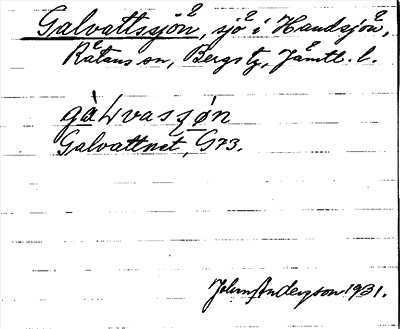 Galvattssjön, sjö i Handsjön,
Rätans sn, Bergs tg, Jämtl. l.
gàⱢvasʂøn
Galvattnet, G73.
John Anderson 1931.